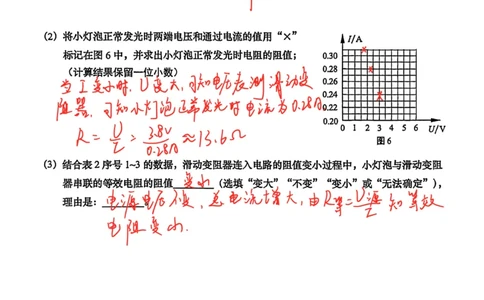 (2) 将小灯泡正常发光时两端电压和通过电流的值用“×”
标记在图 6 中，并求出小灯泡正常发光时电阻的阻值；
(计算结果保留一位小数)
当I变小时，U变大，可知电压表测滑动变
阻器，可知小灯泡正常发光时电流为0.28A。
R = U/I = 3.8V/0.28A ≈ 13.6Ω
I/A
0.30
0.28
0.26
0.24
0.22
0.20
0 1 2 3 4 5 6 U/V
图6
(3) 结合表 2 序号 1~3 的数据，滑动变阻器连入电路的阻值变小过程中，小灯泡与滑动变阻
器串联的等效电阻的阻值 变小 (选填“变大”“不变”“变小”或“无法确定”)，
理由是：电源电压不变，总电流增大，由R等=U源/I 知等效
电阻变小.